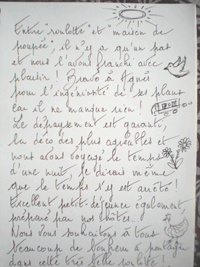 Entre "roulotte" et "maison de
poupée", il n'y a qu'un pas
et nous l'avons franchi avec
plaisir ! Bravo à Agnès
pour l'ingéniosité de ses plans
car il ne manque rien !
Le dépaysement est garanti,
la déco des plus agréables et
nous avons voyagé le temps
d'une nuit, je dirais même
que le temps s'y est arrêté !
Excellent petit-déjeuner également
préparé par nos hôtes.
Nous vous souhaitons à tous
beaucoup de bonheur à partager
dans cette très belle roulotte !